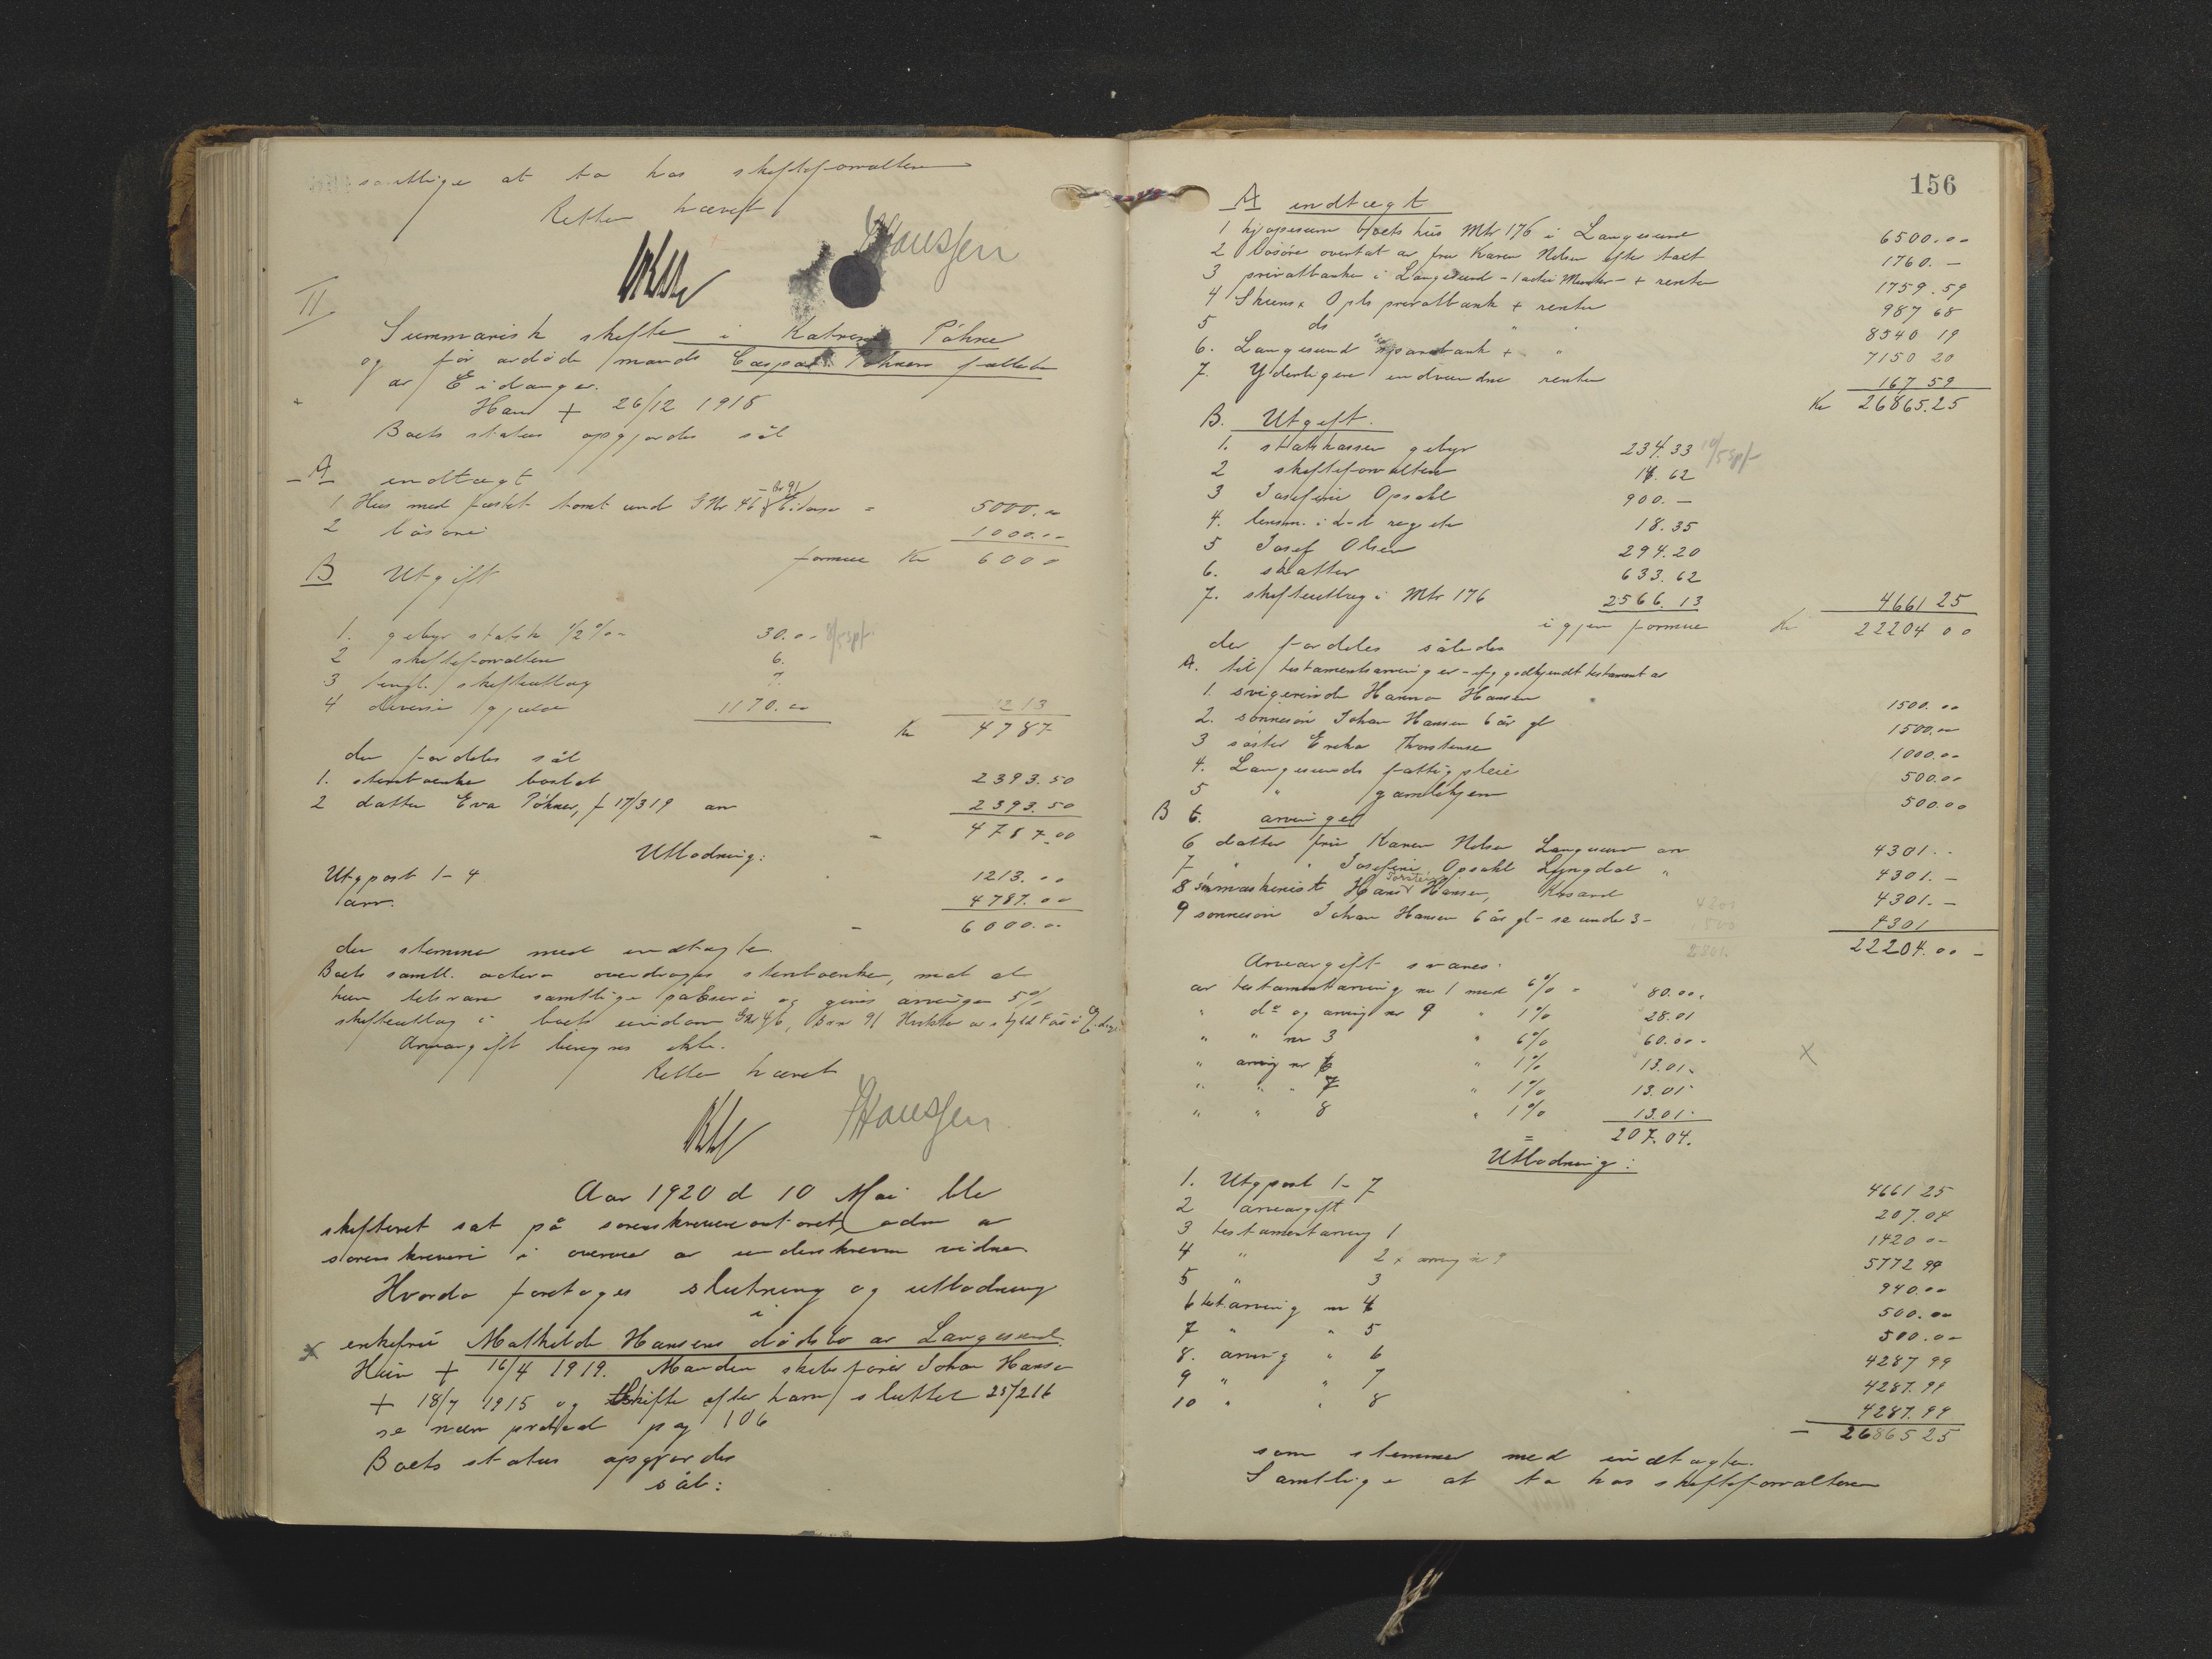 samtlige at ta hos skifteforvalteren
Retten hævet
Hanssen
II
Summarisk skifte i Katrine Töhne
og før avdöde mands Caspar Töhnes fællesbo
av Eidanger.
Han + 26/12 1918
Boets status opgjordes sål
A indtægt
1 Hus med fæstet tomt und GNr 46 Br 91 Eidanger = 5000.00
2 løsøre 1000.00
formue Kr 6000
B Utgift
1. gebyr statsk 1/2 % 30.00
2 skifteforvalteren 6.
3 tingl. skifteutlæg 7.
4 diverse gjæld 1170.00 1213
Kr 4787
der fordeles sål
1. stervboenke boslod 2393.50
2 datter Eva Töhnes, f 17/3 19 arv 2393.50
- 4787.00
Utlodning:
Utgpost 1-4 1213.00
arv. 4787.00
- 6000.00
der stemmer med indtægten
Boets samtl. activa overdrages stervboenken, mot at
hun tilsvarer samtlige passiva og gives arvingen 5 %
skifteutlæg i boets eiendom GNr 46, Bnr 91
Arveavgift beregnes ikke.
Retten hævet
Hanssen
Aar 1920 d 10 Mai ble
skifteret sat på sorenskriverkontoret adm av
sorenskriveren i overvær av underskrevne vidner
Hvorda foretoges slutning og utlodning
i
x enkefru Mathilde Hansens dødsbo av Langesund.
Hun + 16/4 1919. Manden skibsfører Johan Hansen
+ 18/7 1915 og skifte efter ham sluttet 25/2 16
se nærv protokol pag 106
Boets status opgjordes
sål:
156
A indtægt
1 kjøpesum boets hus Mtr 176 i Langesund 6500.00
2 løsöre overtat av fru Karen Nilsen efter takst 1760.-
3 privatbanken i Langesund - 1 actie + renter 1759.59
4 Skiens & Opls privatbank + renter 987 68
5 do " " 8540 19
6. Langesund sparebank + " 7150 20
7. Yderligere indvundne renter 167 59
Kr 26865.25
B. Utgift.
1. statskassen gebyr 234.33
2 skifteforvalteren 14.62
3 Josefine Opsahl 900.-
4. lensm. i L-d regnskr 18.35
5 Josef Olsen 294.20
6. skatter 633.62
7. skifteutlæg i Mtr 176 2566.13 4661 25
igjen formue Kr 22204 00
der fordeles således
A. til testamentsarvinger - efg godkjendt testament av
1. svigerinde Hanna Hansen 1500.00
2. sönnesön Johan Hansen 6 år gl 1500.00
3 söster Eneka Thorstensen 1000.00
4. Langesunds fattigpleie 500.00
5 " gamlehjem 500.00
B 6. arvinger
6 datter fru Karen Nilsen Langesund arv 4301.-
7 " " Josefine Opsahl Lyngdal " 4301.-
8 sön maskinist Hans Torstein Hansen, Krsand 4301.-
9 sönnesön Johan Hansen 6 år gl - se under 3- 4301
22204.00 -
Arveavgift svares:
av testamentarving nr 1 med 6% - 80.00.
" do og arving nr 9 " 1% 28.01
" " nr 3 " 6% 60.00.
" arving nr 6 " 1% 13.01.
" " " 7 " 1% 13.01
" " 8 " 1% 13.01.
= 207.04.
x
Utlodning:
1. Utgpost 1-7 4661 25
2 arveavgift 207.04
3 testamentarving 1 1420 00
4 " 2 x arving nr 9 5772 99
5 " 3 940.00
6 test arving nr 4 500.00
7 " " 5 500.00
8. arving " 6 4287 99
9 " " 7 4287.99
10 " " 8 4287.99
- 26865 25
som stemmer med indtægten.
Samtlige at ta hos skifteforvalteren